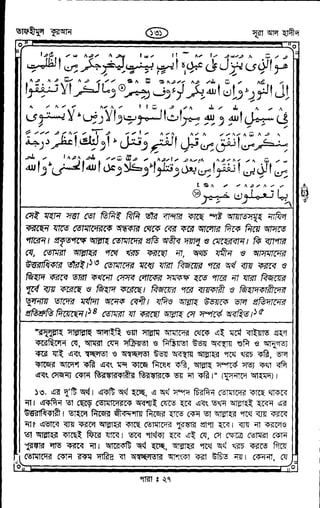 তাফহীমুল কুরআন
১৩১
সূরা আল হাদীদ
هُوَ الَّذِي يُنَزِّلُ عَلَى عَبْدِهِ آيَتٍ بَيِّنَتٍ لِيُخْرِجَكُمْ مِنَ الظُّلُمَتِ
إِلَى النُّورِ وَإِنَّ اللَّهَ بِكُمْ لَرَءُوفٌ رَحِيمٌ ⑨ وَمَا لَكُمْ أَلَّا تُنْفِقُوا
فِي سَبِيلِ اللَّهِ وَلِلَّهِ مِيرَاثُ السَّمَوتِ وَالْأَرْضِ لَا يَسْتَوِي
مِنْكُمْ مَنْ أَنْفَقَ مِنْ قَبْلِ الْفَتْحِ وَقَتَلَ أُولَئِكَ أَعْظَمُ دَرَجَةً
مِنَ الَّذِينَ أَنْفَقُوا مِنْ بَعْدُ وَقَتَلُوا وَكُلًّا وَعَدَ اللَّهُ الْحُسْنَى وَاللَّهُ
بِمَا تَعْمَلُونَ خَبِيرٌ ⑩
সেই মহান সত্তা তো তিনিই যিনি তাঁর বান্দার কাছে স্পষ্ট আয়াতসমূহ নাযিল
করছেন যাতে তোমাদেরকে অন্ধকার থেকে বের করে আলোর দিকে নিয়ে আসতে
পারেন। প্রকৃতপক্ষে আল্লাহ তোমাদের প্রতি অতীব দয়ালু ও মেহেরবান। কি ব্যাপার
যে, তোমরা আল্লাহর পথে খরচ করছো না, অথচ যমীন ও আসমানের
উত্তরাধিকার তাঁরই।১৩ তোমাদের মধ্যে যারা বিজয়ের পরে অর্থ ব্যয় করবে ও
জিহাদ করবে তারা কখনো সেসব লোকের সমকক্ষ হতে পারে না যারা বিজয়ের
পূর্বে ব্যয় করেছে ও জিহাদ করেছে। বিজয়ের পরে ব্যয়কারী ও জিহাদকারীদের
তুলনায় তাদের মর্যাদা অনেক বেশী। যদিও আল্লাহ উভয়কে ভাল প্রতিদানের
প্রতিশ্রুতি দিয়েছেন।১৪ তোমরা যা করছো আল্লাহ সে সম্পর্কে অবহিত।১৫
"রসূলুল্লাহ সাল্লাল্লাহু আলাইহি ওয়া সাল্লাম আমাদের থেকে এই মর্মে বাইয়াত গ্রহণ
করেছিলেন যে, আমরা যেন সক্রিয়তা ও নিষ্ক্রিয়তা উভয় অবস্থায় শুনি ও আনুগত্য
করে যাই এবং স্বচ্ছলতা ও অস্বচ্ছলতা উভয় অবস্থায় আল্লাহর পথে খরচ করি, ভাল
কাজের আদেশ করি এবং মন্দ কাজে নিষেধ করি, আল্লাহ সম্পর্কে সত্য কথা বলি
এবং সেজন্য কোন তিরস্কারকারীর তিরস্কারকে ভয় না করি।" (মুসনাদে আহমাদ)।
১৩. এর দু'টি অর্থ। একটি অর্থ হচ্ছে, এ অর্থ সম্পদ চিরদিন তোমাদের কাছে থাকবে
না। একদিন তা ছেড়ে তোমাদেরকে অবশ্যই যেতে হবে এবং তখন আল্লাহই হবেন এর
উত্তরাধিকারী। তাহলে নিজের জীবদ্দশায় নিজের হাতে কেন তা আল্লাহর পথে ব্যয় করবে
না? এভাবে ব্যয় করলে আল্লাহর কাছে তোমাদের পুরস্কার প্রাপ্য হবে। ব্যয় না করলেও
তা আল্লাহর কাছেই ফিরে যাবে। তবে পার্থক্য হবে এই যে, সে ক্ষেত্রে তোমরা কোন
পুরস্কার লাভ করবে না। আরেকটি অর্থ হচ্ছে, আল্লাহর পথে অর্থ খরচ করতে গিয়ে
তোমাদের কোন রকম দারিদ্র বা অস্বচ্ছলতার আশংকা করা উচিত নয়। কেননা, যে
পারা : ২৭